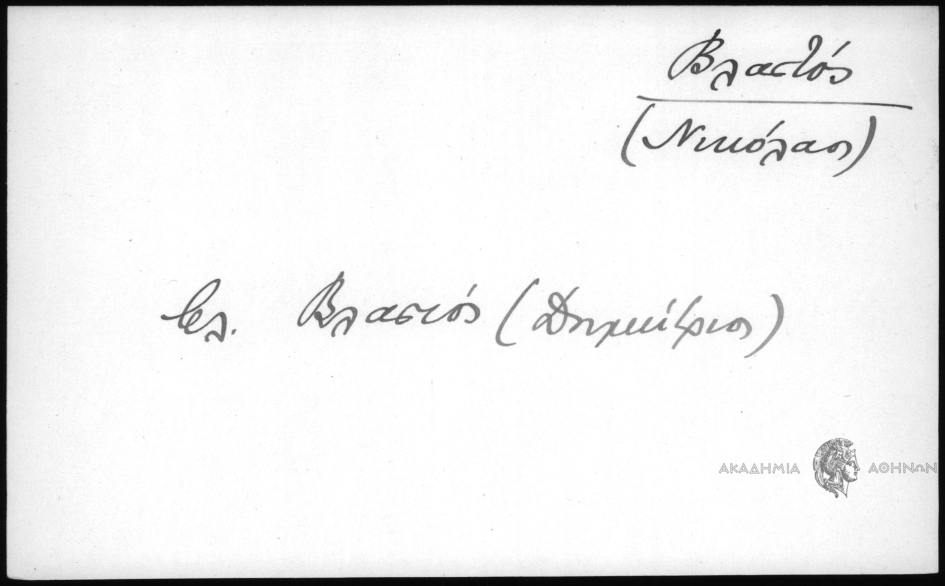 Βλαστός
(Νικόλαος)
βλ. Βλαστός (Δημήτριος)
ΑΚΑΔΗΜΙΑ ΑΘΗΝΩΝ